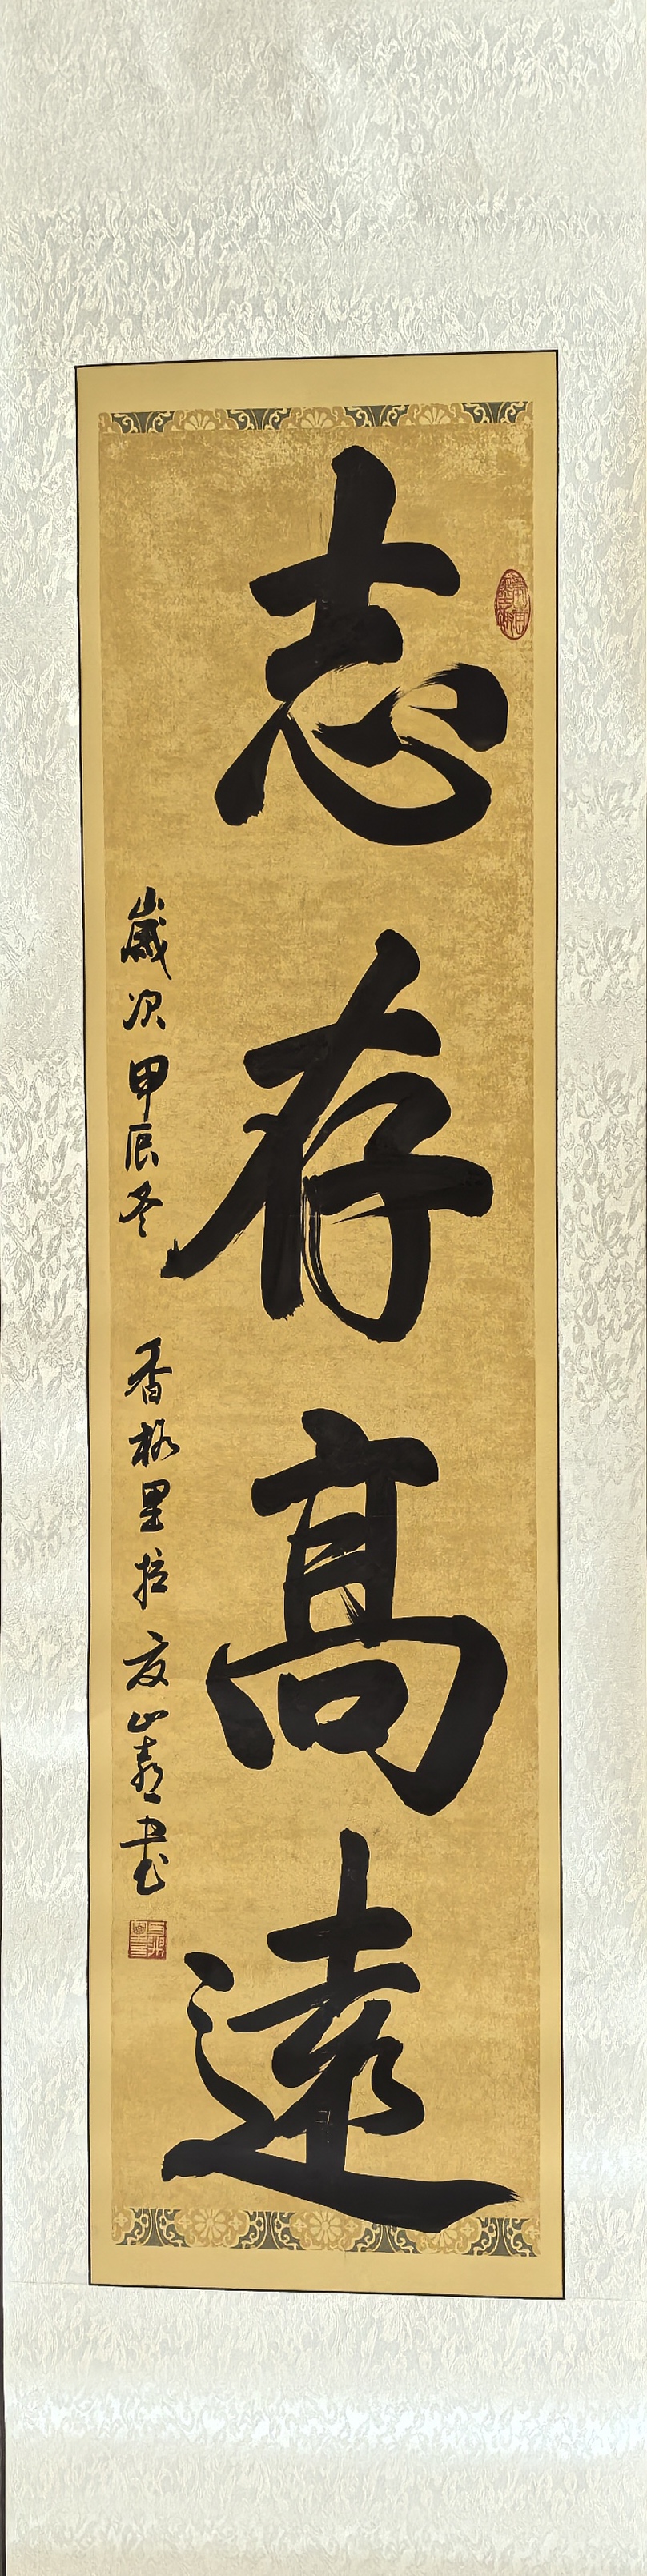 志存高遠
歲次甲辰冬
香格里拉 山 書